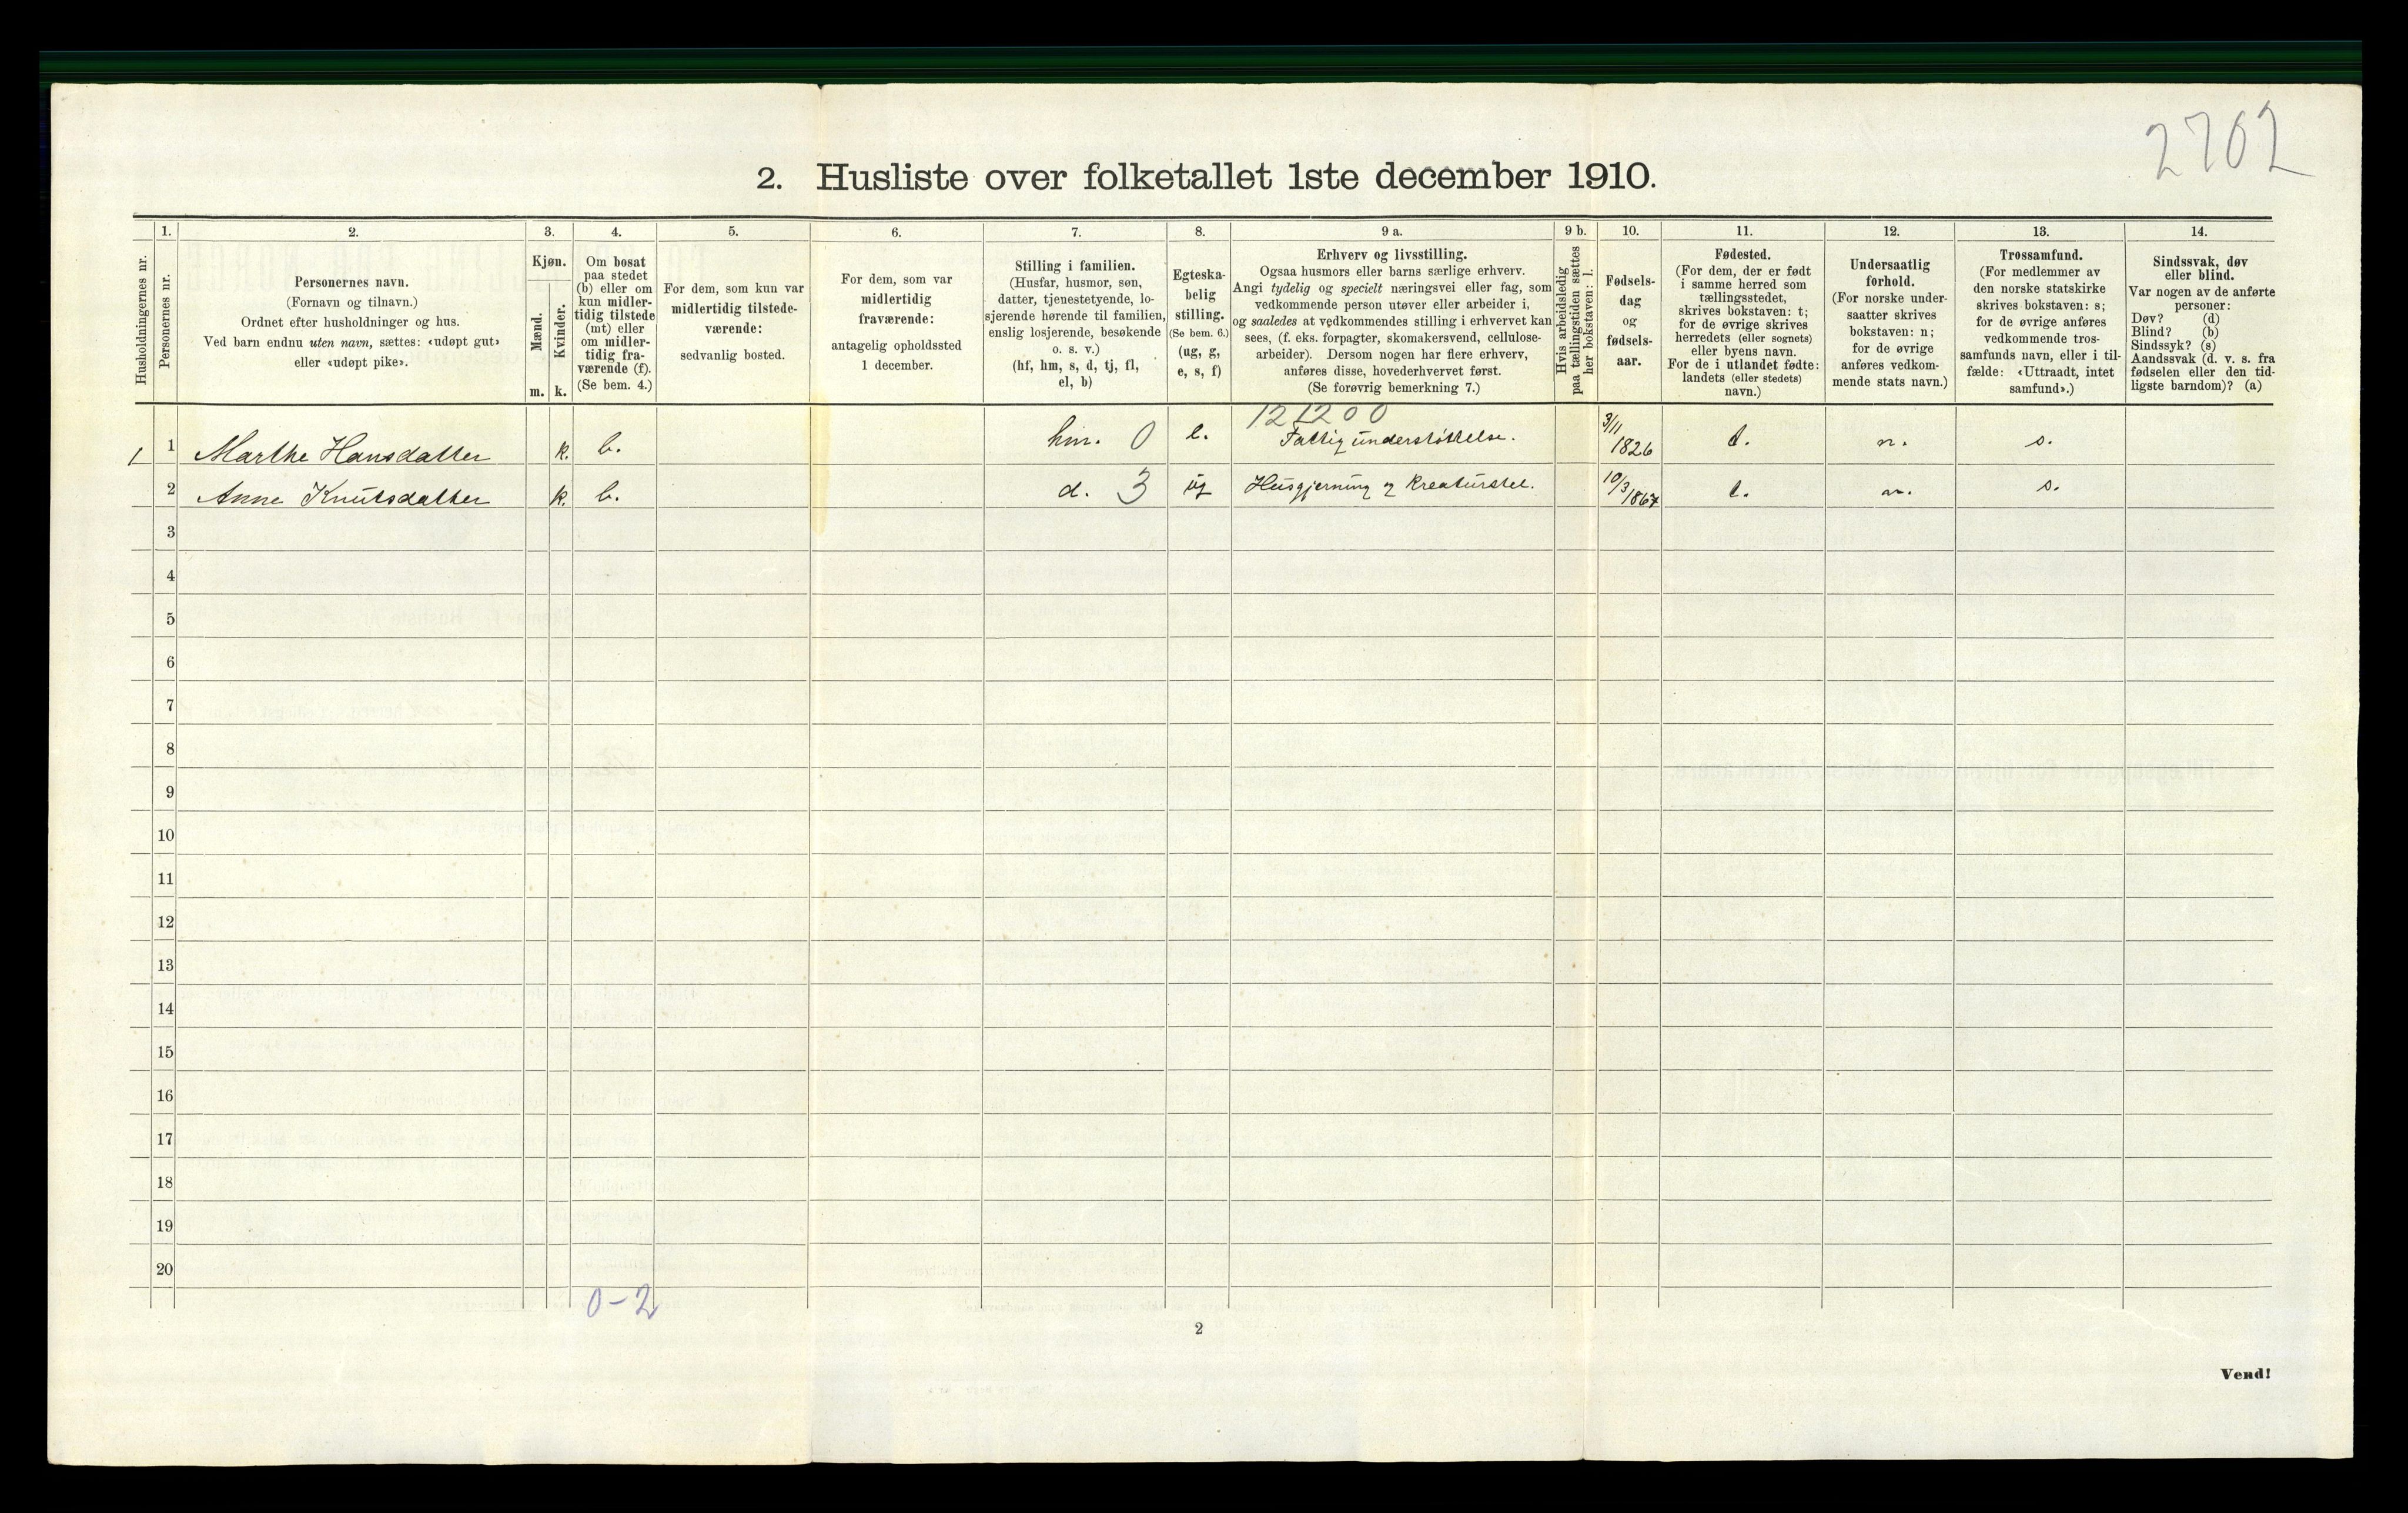 2702
2. Husliste over folketallet 1ste december 1910.
Husholdningernes nr.
1.
Personernes nr.
2.
Personernes navn.
(Fornavn og tilnavn.)
Ordnet efter husholdninger og hus.
Ved barn endnu uten navn, sættes: «udøpt gut»
eller «udøpt pike».
3.
Kjøn.
Mænd.
Kvinder.
m. k.
4.
Om bosat
paa stedet
(b) eller om
kun midler-
tidig tilstede
(mt) eller
om midler-
tidig fra-
værende (f).
(Se bem. 4.)
5.
For dem, som kun var
midlertidig tilstede-
værende:
sedvanlig bosted.
6.
For dem, som var
midlertidig
fraværende:
antagelig opholdssted
1 december.
7.
Stilling i familien.
(Husfar, husmor, søn,
datter, tjenestetyende, lo-
sjerende hørende til familien,
enslig losjerende, besøkende
o. s. v.)
(hf, hm, s, d, tj, fl,
el, b)
8.
Egteska-
belig
stilling.
(Se bem. 6.)
(ug, g,
e, s, f)
9 a.
Erhverv og livsstilling.
Ogsaa husmors eller barns særlige erhverv.
Angi tydelig og specielt næringsvei eller fag, som
vedkommende person utøver eller arbeider i,
og saaledes at vedkommendes stilling i erhvervet kan
sees, (f. eks. forpagter, skomakersvend, cellulose-
arbeider). Dersom nogen har flere erhverv,
anføres disse, hovederhvervet først.
(Se forøvrig bemerkning 7.)
9 b.
Hvis arbeidsledig
paa tællingstiden sættes
her bokstaven: l.
10.
Fødsels-
dag
og
fødsels-
aar.
11.
Fødested.
(For dem, der er født
i samme herred som
tællingsstedet,
skrives bokstaven: t;
for de øvrige skrives
herredets (eller sognets)
eller byens navn.
For de i utlandet fødte:
landets (eller stedets)
navn.)
12.
Undersaatlig
forhold.
(For norske under-
saatter skrives
bokstaven: n;
for de øvrige
anføres vedkom-
mende stats navn.)
13.
Trossamfund.
(For medlemmer av
den norske statskirke
skrives bokstaven: s;
for de øvrige anføres
vedkommende tros-
samfunds navn, eller i til-
fælde: «Uttraadt, intet
samfund».)
14.
Sindssvak, døv
eller blind.
Var nogen av de anførte
personer:
Døv? (d)
Blind? (b)
Sindssyk? (s)
Aandssvak (d. v. s. fra
fødselen eller den tid-
ligste barndom)? (a)
121200
1 1 Marthe Hansdatter k. b. hm. 0 e. Fattigunderstøttelse. 3/11 1826 t. n. s.
2 Anne Knutsdatter k. b. d. 3 ug Husgjerning og Kreaturstel. 10/3 1867 t. n. s.
3
4
5
6
7
8
9
10
11
12
13
14
15
16
17
18
19
20
0-2
2
Vend!